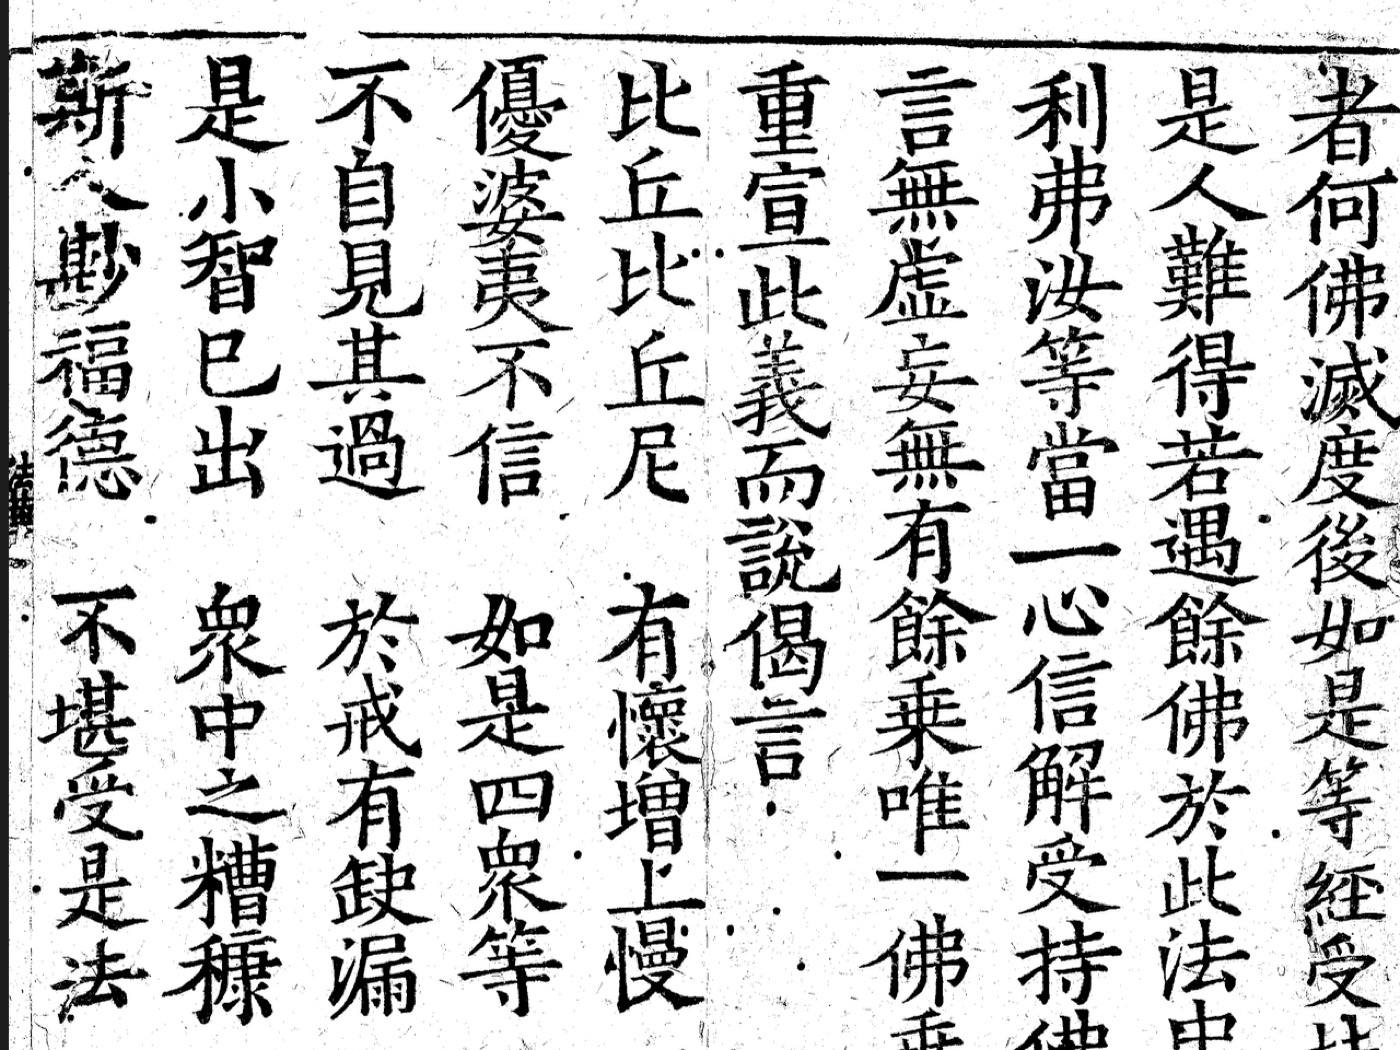 者何佛滅度後如是等經受持
是人難得若遇餘佛於此法中
利弗汝等當一心信解受持佛
言無虛妄無有餘乗唯一佛乗
重宣此義而說偈言
比丘比丘尼　有懷增上慢
優婆夷不信　如是四眾等
不自見其過　於戒有缺漏
是小智巳出　眾中之糟糠
斯人尠福德　不堪受是法